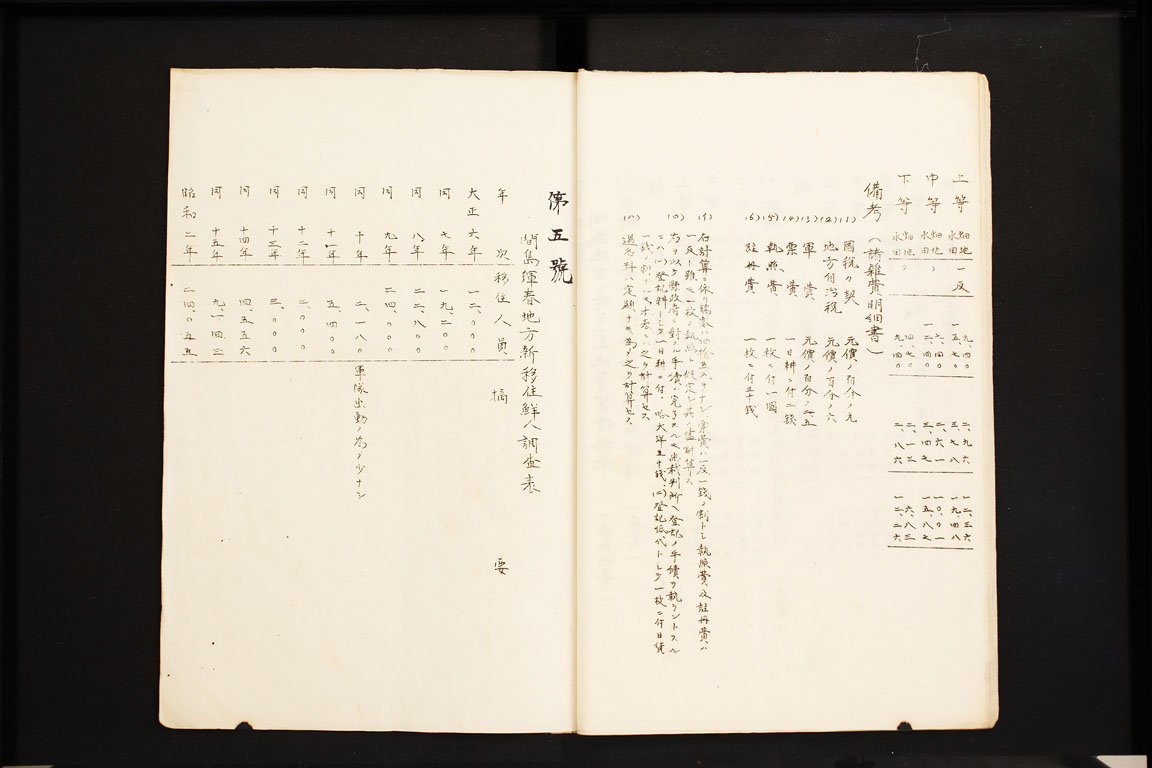 上等 畑地 一反 九、四〇 二、九六 一二、三六
水田 一五、七〇 三、七八 一九、四八
中等 畑地 〃 七、四〇 二、六一 一〇、〇一
水田 一二、四〇 三、四七 一五、八七
下等 畑地 〃 四、七〇 二、一三 六、八三
水田 九、四〇 二、八六 一二、二六
備考（諸雑費明細書）
(1) 國税々契 元價ノ百分ノ九
(2) 地方自治税 元價ノ百分ノ六
(3) 軍費 元價ノ百分ノ二、五
(4) 票費 一日耕ニ付二錢
(5) 執照費 一枚ニ付一圓
(6) 註冊費 一枚ニ付五十錢
(イ) 右計算ニ依リ端數ハ四捨五入ヲナシ票費ハ一反一錢ノ割トシ執照費及註冊費ハ
一反ト雖モ一枚ノ執照ト假定シ其ノ儘計算ス
(ロ) 右ヲ以テ縣政府ニ對スル手續ハ完了スルモ尚裁判所ヘ登記ノ手續ヲ執ラントスル
ニハ(一)登記料トシテ一日耕ニ付、哈大洋五十錢、(二)登記紙代トシテ一枚ニ付日貨
一錢ノ割トスルモ本表ニハ之ヲ計算セス
(ハ) 過名料ハ定額ナキ為メ之ヲ計算セス
第五號
間島琿春地方新移住鮮人調査表
年次 移住人員 摘要
大正六年 一二、〇〇〇
同 七年 一九、二〇〇
同 八年 二二、八〇〇
同 九年 二四、〇〇〇
同 十年 二、一八〇 軍隊出動ノ為メ少ナシ
同 十一年 五、四〇〇
同 十二年 二、〇〇〇
同 十三年 三、〇〇〇
同 十四年 四、五五六
同 十五年 九、一四三
昭和二年 二四、〇五五